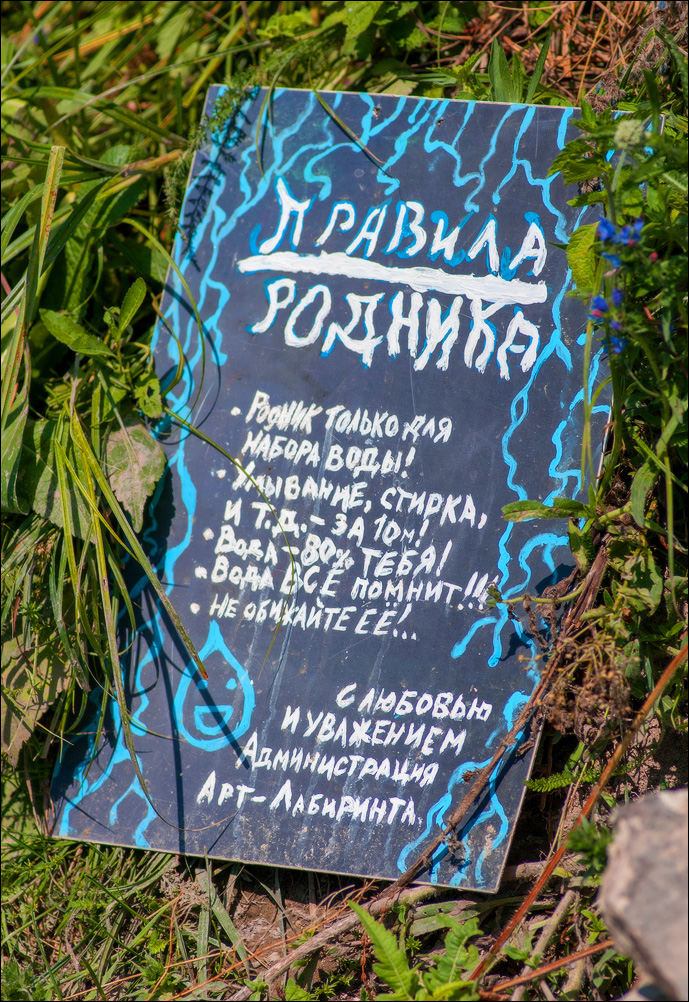 ПРАВИЛА
РОДНИКА
• РОДНИК ТОЛЬКО ДЛЯ
НАБОРА ВОДЫ!
• УМЫВАНИЕ, СТИРКА,
И Т.Д. – ЗА 10м!
• ВОДА – 80% ТЕБЯ!
• ВОДА ВСЁ ПОМНИТ!!!
• НЕ ОБИЖАЙТЕ ЕЁ!..
С ЛЮБОВЬЮ
И УВАЖЕНИЕМ
АДМИНИСТРАЦИЯ
АРТ-ЛАБИРИНТА.